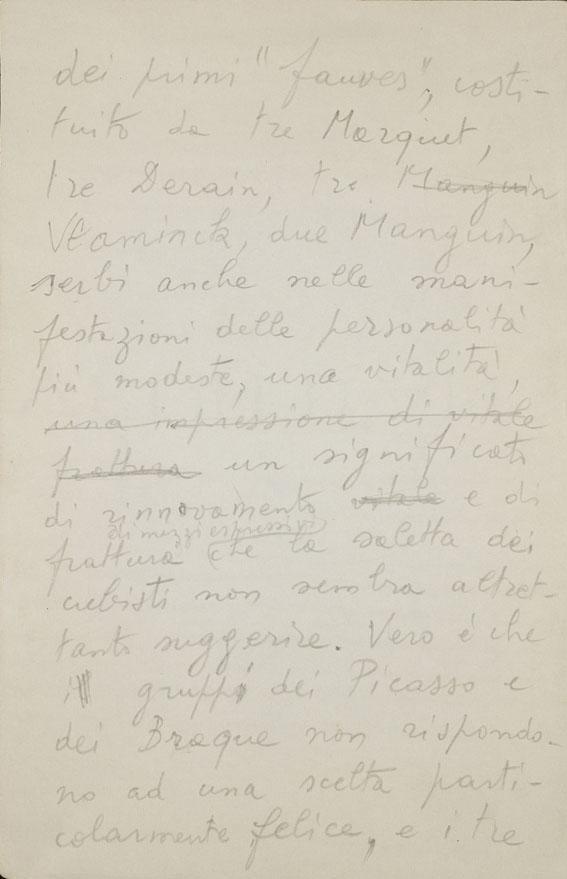 dei primi "fauves", costi-
tuito da tre Marquet,
tre Derain, tre Manguin
Vlaminck, due Manguin,
serbi anche nelle mani-
festazioni delle personalità
più modeste, una vitalità,
una impressione di vitale
frattura un significato
di rinnovamento vitale e di
di mezzi espressivi
frattura che la saletta dei
cubisti non sembra altret-
tanto suggerire. Vero è che
i gruppi dei Picasso e
dei Braque non rispondo-
no ad una scelta parti-
colarmente felice, e i tre